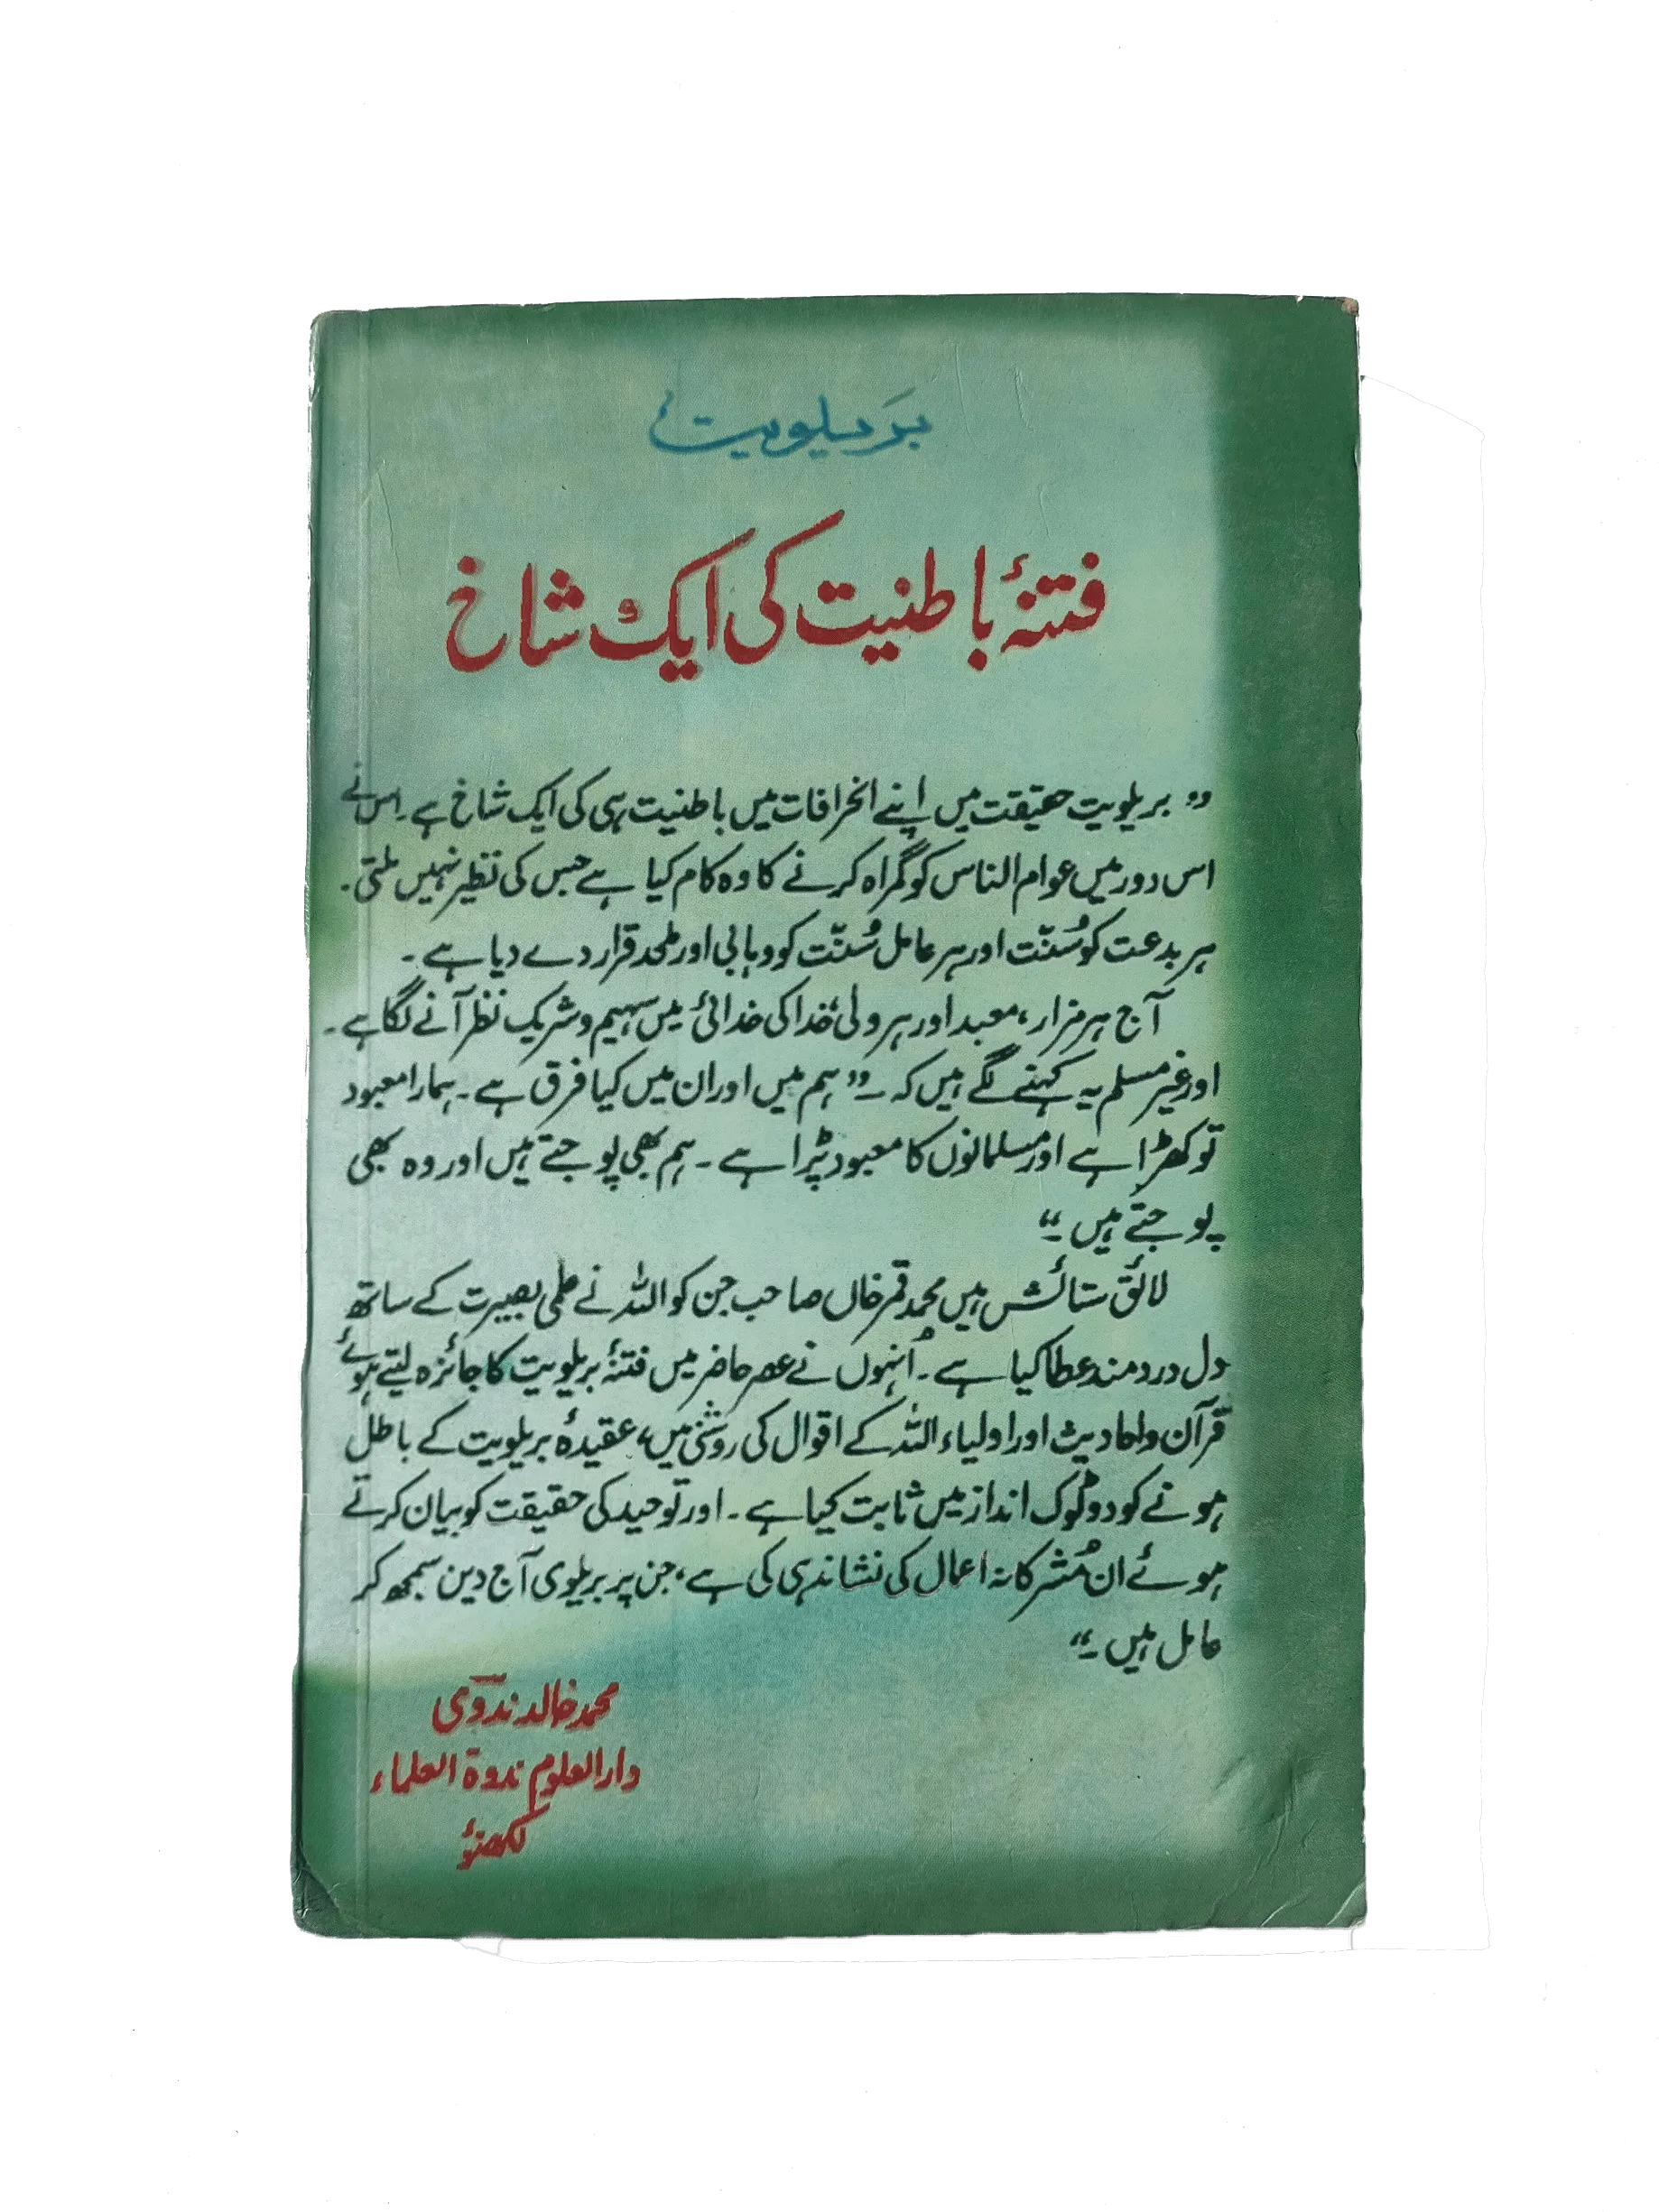 بَریلویت
فتنۂ باطنیت کی ایک شاخ
” بریلویت حقیقت میں اپنے انحرافات میں باطنیت ہی کی ایک شاخ ہے۔ اس نے
اس دور میں عوام الناس کو گمراہ کرنے کا وہ کام کیا ہے جس کی نظیر نہیں ملتی۔
ہر بدعت کو سُنّت اور ہر عامل سُنّت کو وہابی اور ملحد قرار دے دیا ہے۔
آج ہر مزار، معبد اور ہر ولی، خدا کی خدائی میں سہیم و شریک نظر آنے لگا ہے۔
اور غیر مسلم یہ کہنے لگے ہیں کہ ۔” ہم میں اور ان میں کیا فرق ہے۔ ہمارا معبود
تو کھڑا ہے اور مسلمانوں کا معبود پڑا ہے۔ ہم بھی پوجتے ہیں اور وہ بھی
پوجتے ہیں ۔“
لائق ستائش ہیں محمد قمر خاں صاحب جن کو اللہ نے علمی بصیرت کے ساتھ
دل دردمند عطا کیا ہے۔ اُنہوں نے عصر حاضر میں فتنۂ بریلویت کا جائزہ لیتے ہوئے
قرآن و احادیث اور اولیاء اللہ کے اقوال کی روشنی میں، عقیدۂ بریلویت کے باطل
ہونے کو دو ٹوک انداز میں ثابت کیا ہے۔ اور توحید کی حقیقت کو بیان کرتے
ہوئے ان مُشرکانہ اعمال کی نشاندہی کی ہے، جن پر بریلوی آج دین سمجھ کر
عامل ہیں ۔“
محمد خالد ندوی
دارالعلوم ندوۃ العلماء
لکھنؤ